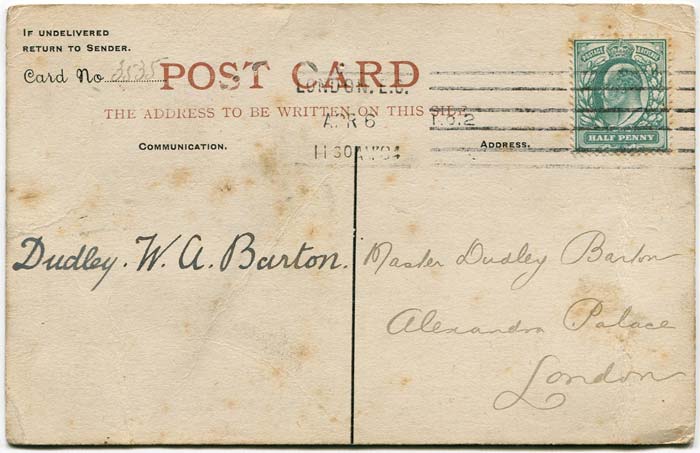 IF UNDELIVERED
RETURN TO SENDER.
Card No 3535
POST CARD
THE ADDRESS TO BE WRITTEN ON THIS SIDE
LONDON. E.C.
APR 6
11 30AM 04
POSTAGE REVENUE
HALF PENNY
COMMUNICATION.
ADDRESS.
Dudley. W. A. Barton.
Master Dudley Barton
Alexandra Palace
London